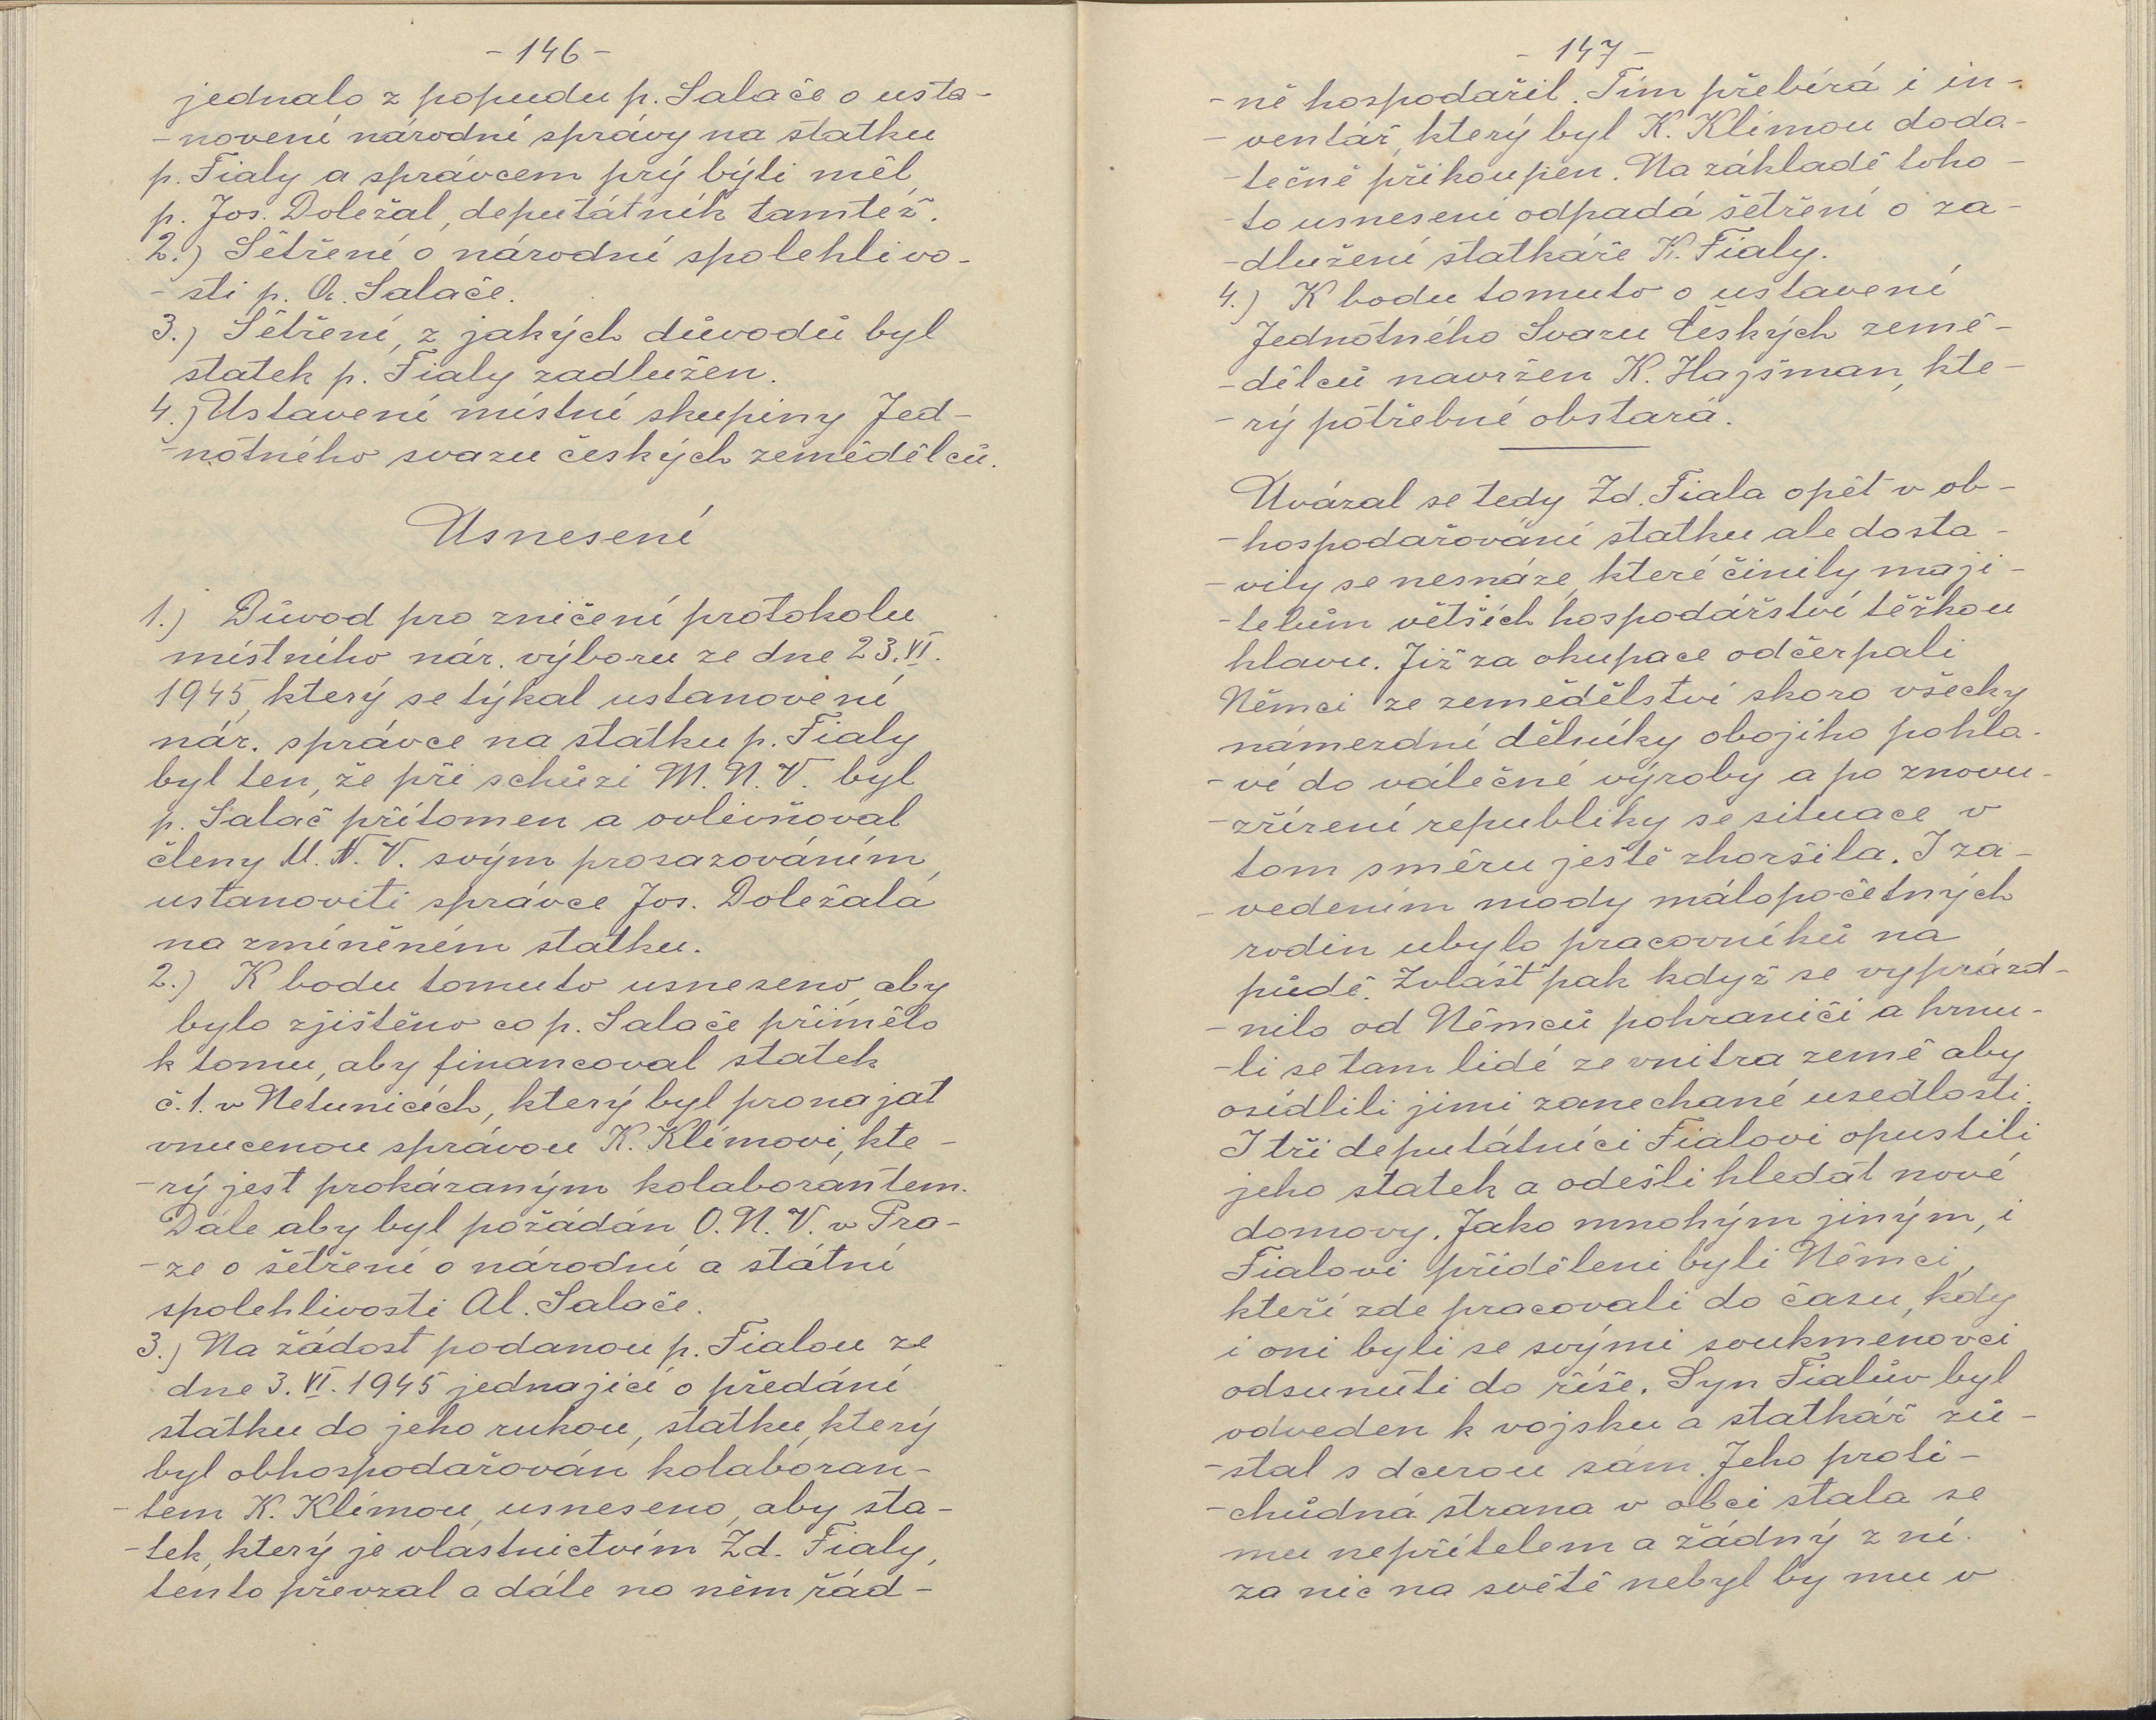 - 146 -
jednalo z popudu p. Salače o usta-
-novení národní správy na statku
p. Fialy a správcem prý býti měl
p. Jos. Doležal, deputátník tamtéž.
2.) Šetření o národní spolehlivo-
-sti p. Al. Salače.
3.) Šetření, z jakých důvodů byl
statek p. Fialy zadlužen.
4.) Ustavení místní skupiny Jed-
-notného svazu českých zemědělců.
Usnesení
1.) Důvod pro zničení protokolu
místního nár. výboru ze dne 23. VI.
1945, který se týkal ustanovení
nár. správce na statku p. Fialy
byl ten, že při schůzi M. N. V. byl
p. Salač přítomen a ovlivňoval
členy M. N. V. svým prosazováním,
ustanoviti správce Jos. Doležala
na zmíněném statku.
2.) K bodu tomuto usneseno, aby
bylo zjištěno co p. Salače přimělo
k tomu, aby financoval statek
č. 1. v Netunicích, který byl pronajat
vnucenou správou K. Klímovi, kte-
-rý jest prokázaným kolaborantem.
Dále aby byl požádán O. N. V. v Pra-
-ze o šetření o národní a státní
spolehlivosti Al. Salače.
3.) Na žádost podanou p. Fialou ze
dne 3. VI. 1945 jednající o předání
statku do jeho rukou, statku, který
byl obhospodařován kolaboran-
-tem K. Klímou, usneseno, aby sta-
-tek, který je vlastnictvím Zd. Fialy,
tento převzal a dále na něm řád-
- 147 -
-ně hospodařil. Tím přebírá i in-
-ventář, který byl K. Klímou doda-
-tečně přikoupen. Na základě toho-
-to usnesení odpadá šetření o za-
-dlužení statkáře K. Fialy.
4.) K bodu tomuto o ustavení
Jednotného Svazu Českých země-
-dělců navržen K. Hajšman, kte-
-rý potřebné obstará.
Uvázal se tedy Zd. Fiala opět v ob-
-hospodařování statku ale dosta-
-vily se nesnáze, které činily maji-
-telům větších hospodářství těžkou
hlavu. Již za okupace odčerpali
Němci ze zemědělství skoro všecky
námezdní dělníky obojího pohla-
-ví do válečné výroby a po znovu-
-zřízení republiky se situace v
tom směru ještě zhoršila. I za-
-vedením mody málopočetných
rodin ubylo pracovníků na
půdě. Zvlášť pak když se vyprázd-
-nilo od Němců pohraničí a hrnu-
-li se tam lidé ze vnitra země aby
osídlili jimi zanechané usedlosti.
I tři deputátníci Fialovi opustili
jeho statek a odešli hledat nové
domovy. Jako mnohým jiným, i
Fialovi přiděleni byli Němci,
kteří zde pracovali do času, kdy
i oni byli se svými soukmenovci
odsunuti do říše. Syn Fialův byl
odveden k vojsku a statkář zů-
-stal s dcerou sám. Jeho proti-
-chůdná strana v obci stala se
mu nepřítelem a žádný z ní
za nic na světě nebyl by mu v